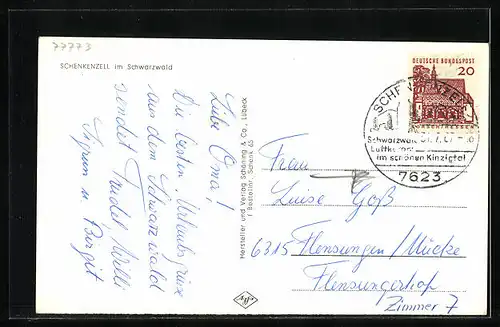 77773
SCHENKENZELL im Schwarzwald
Liebe Oma!
Die besten Urlaubsgrüsse
aus dem Schwarzwald
sendet Trudel Willi
Sigrun u. Birgit
Hersteller und Verlag Schöning & Co., Lübeck
DEUTSCHE BUNDESPOST
20
Schwarzwald
im schönen Kinzigtal
7623
Frau
Luise Goß
6315 Flensungen/Mücke
Flensungerhof
Zimmer 7